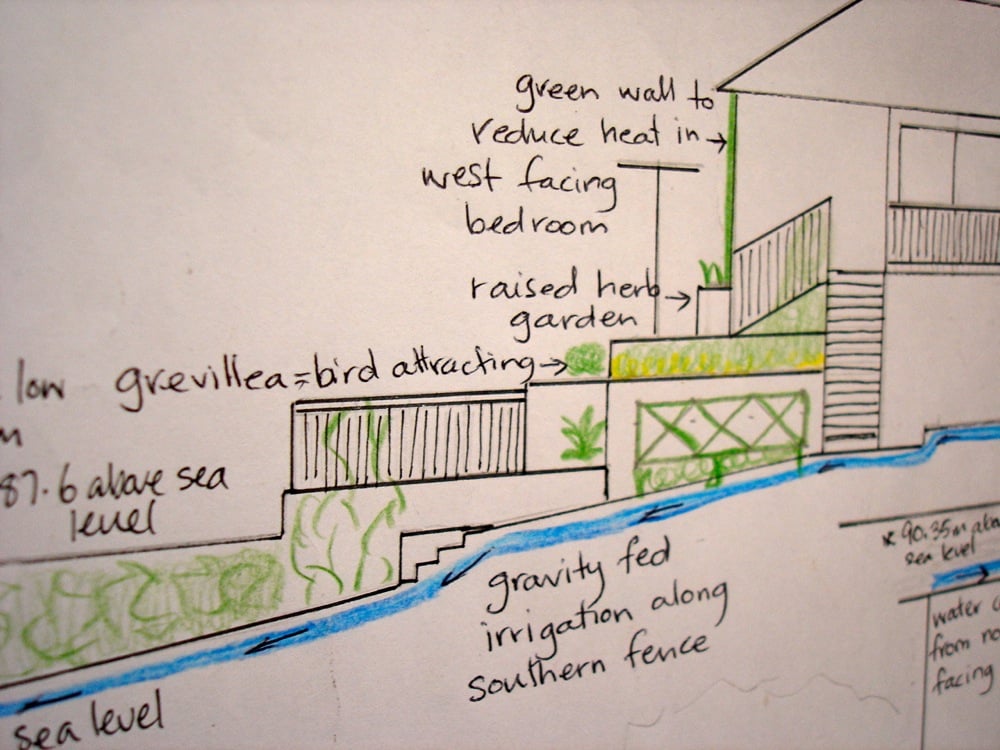 green wall to
reduce heat in →
west facing
bedroom
raised herb →
garden
low grevillea = bird attracting →
87.6 above sea
level
gravity fed
irrigation along
southern fence
sea level
90.35m
sea level
water
from
facing